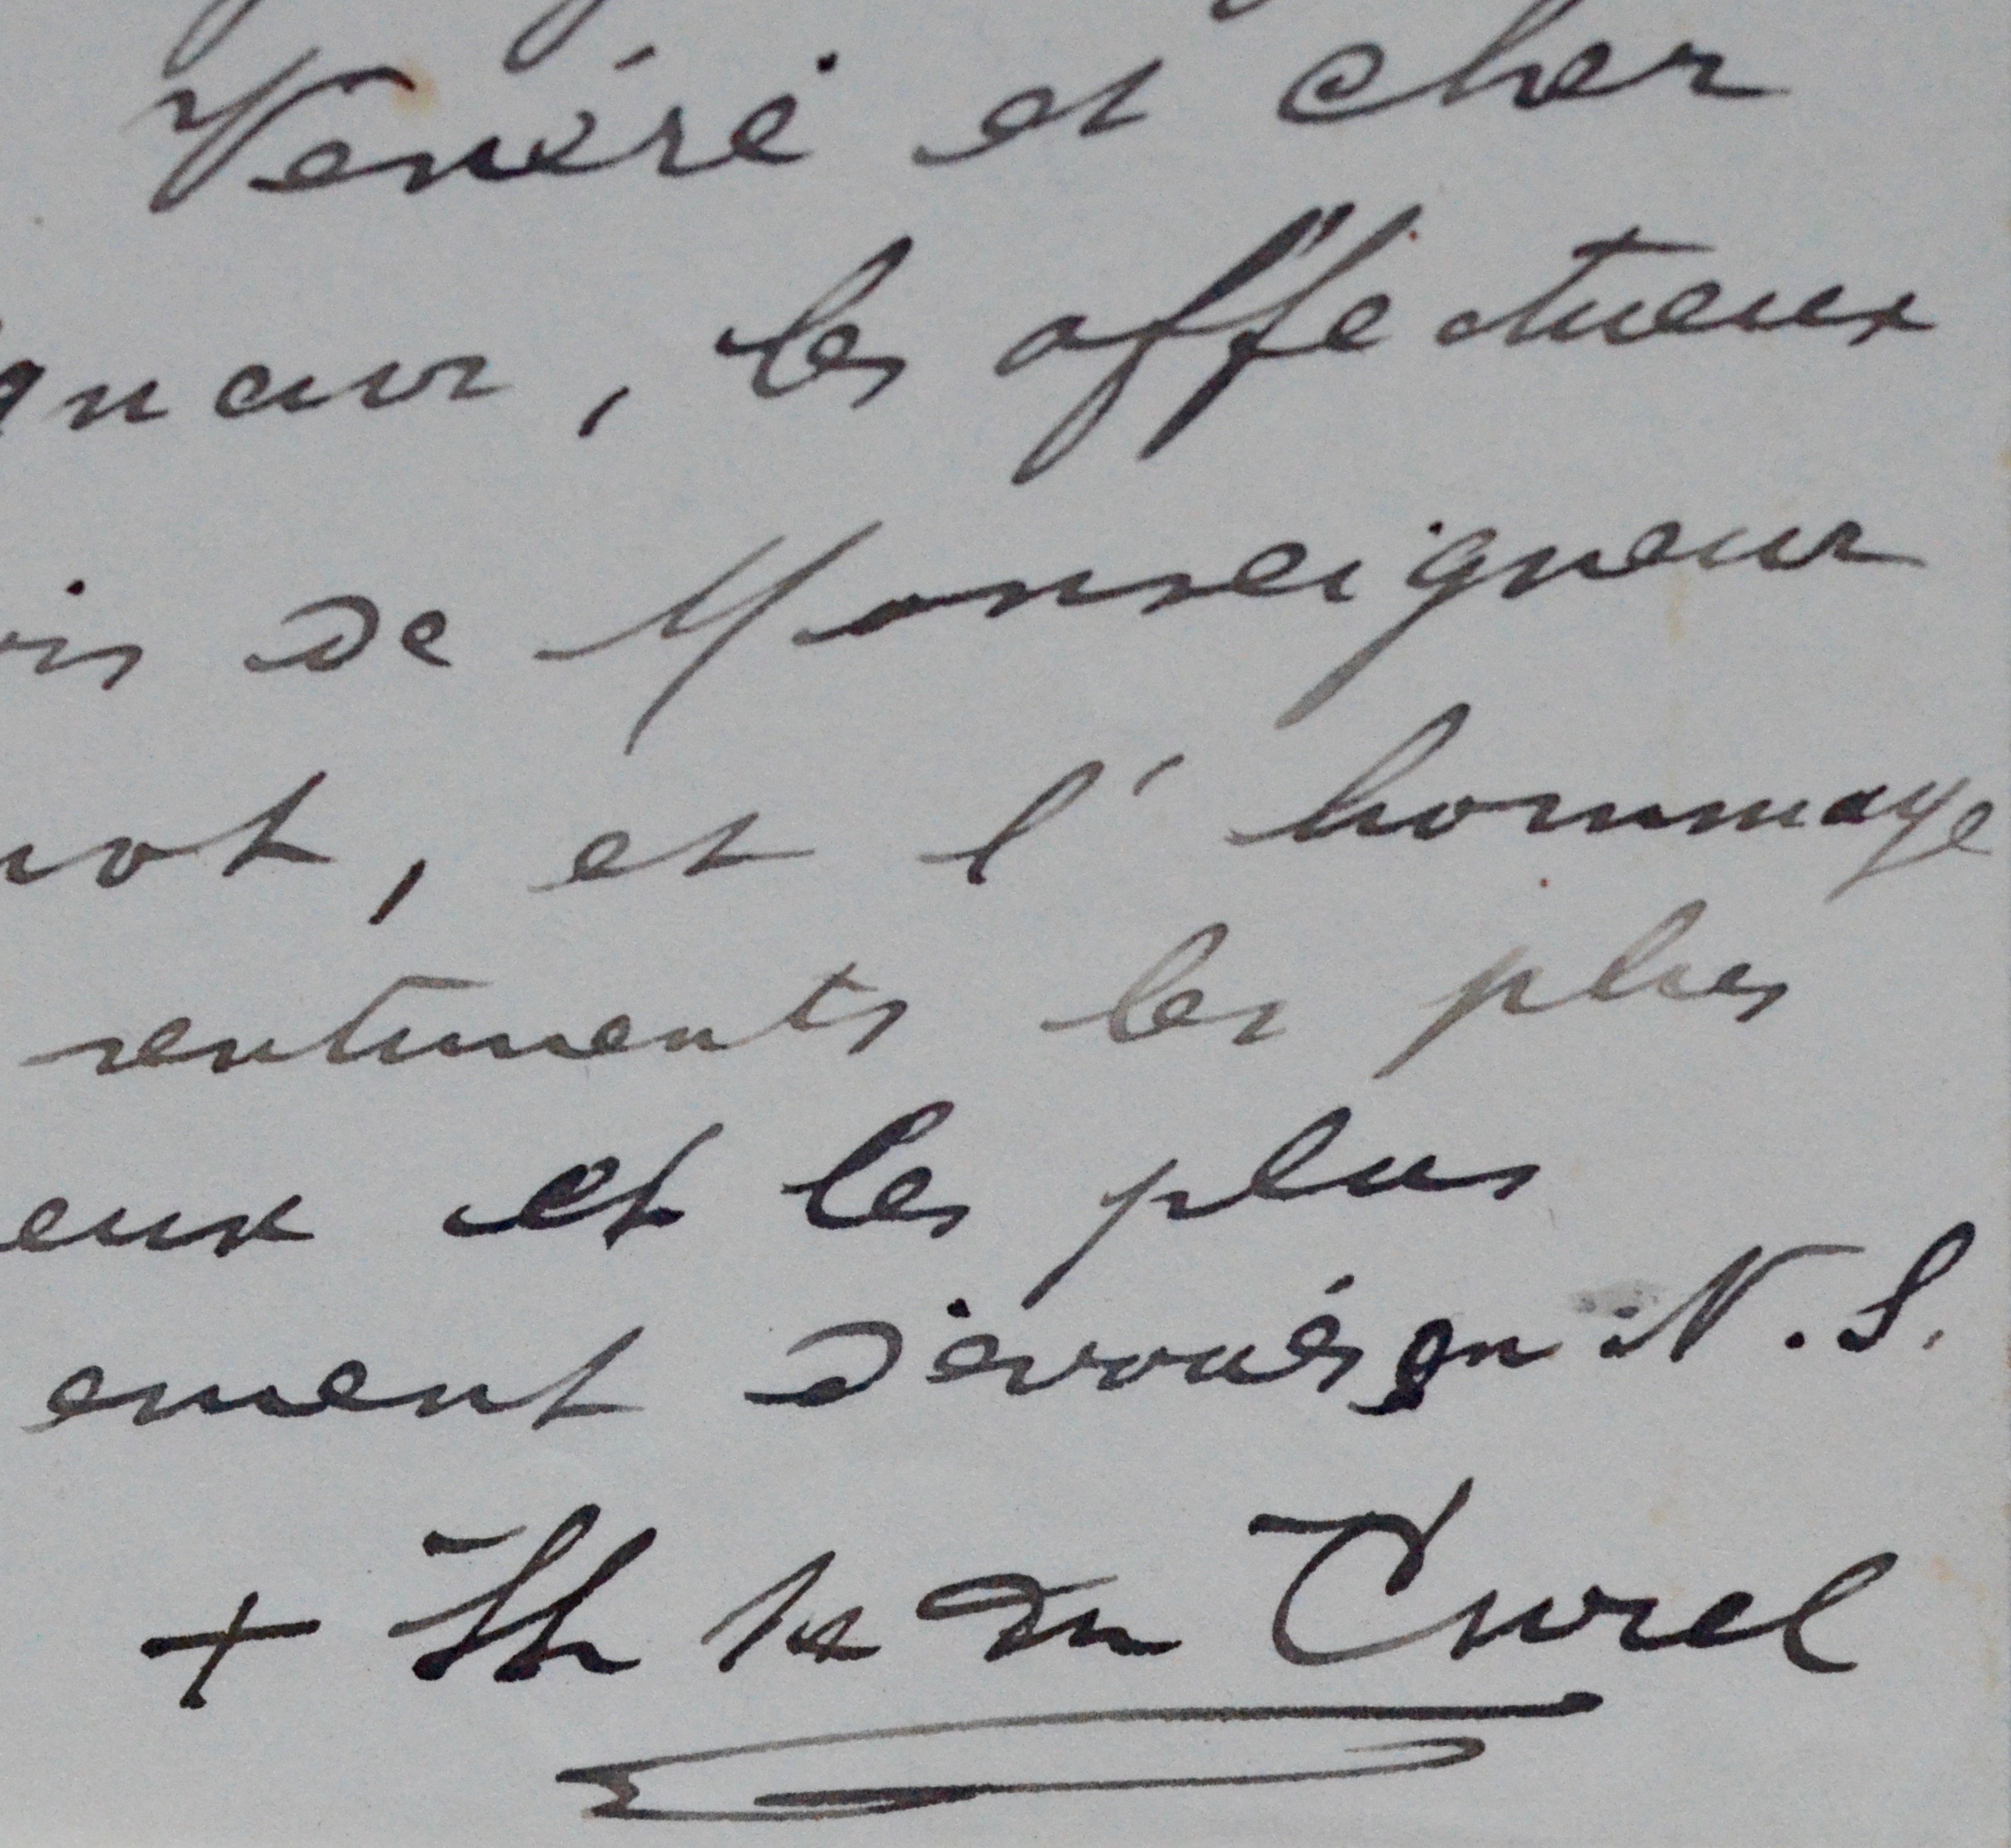 Vénéré et cher
gneur, les affectueux
irs de Monseigneur
not, et l'hommage
sentiments les plus
eux et les plus
ement dévoués en N. S.
+ Th du Curel